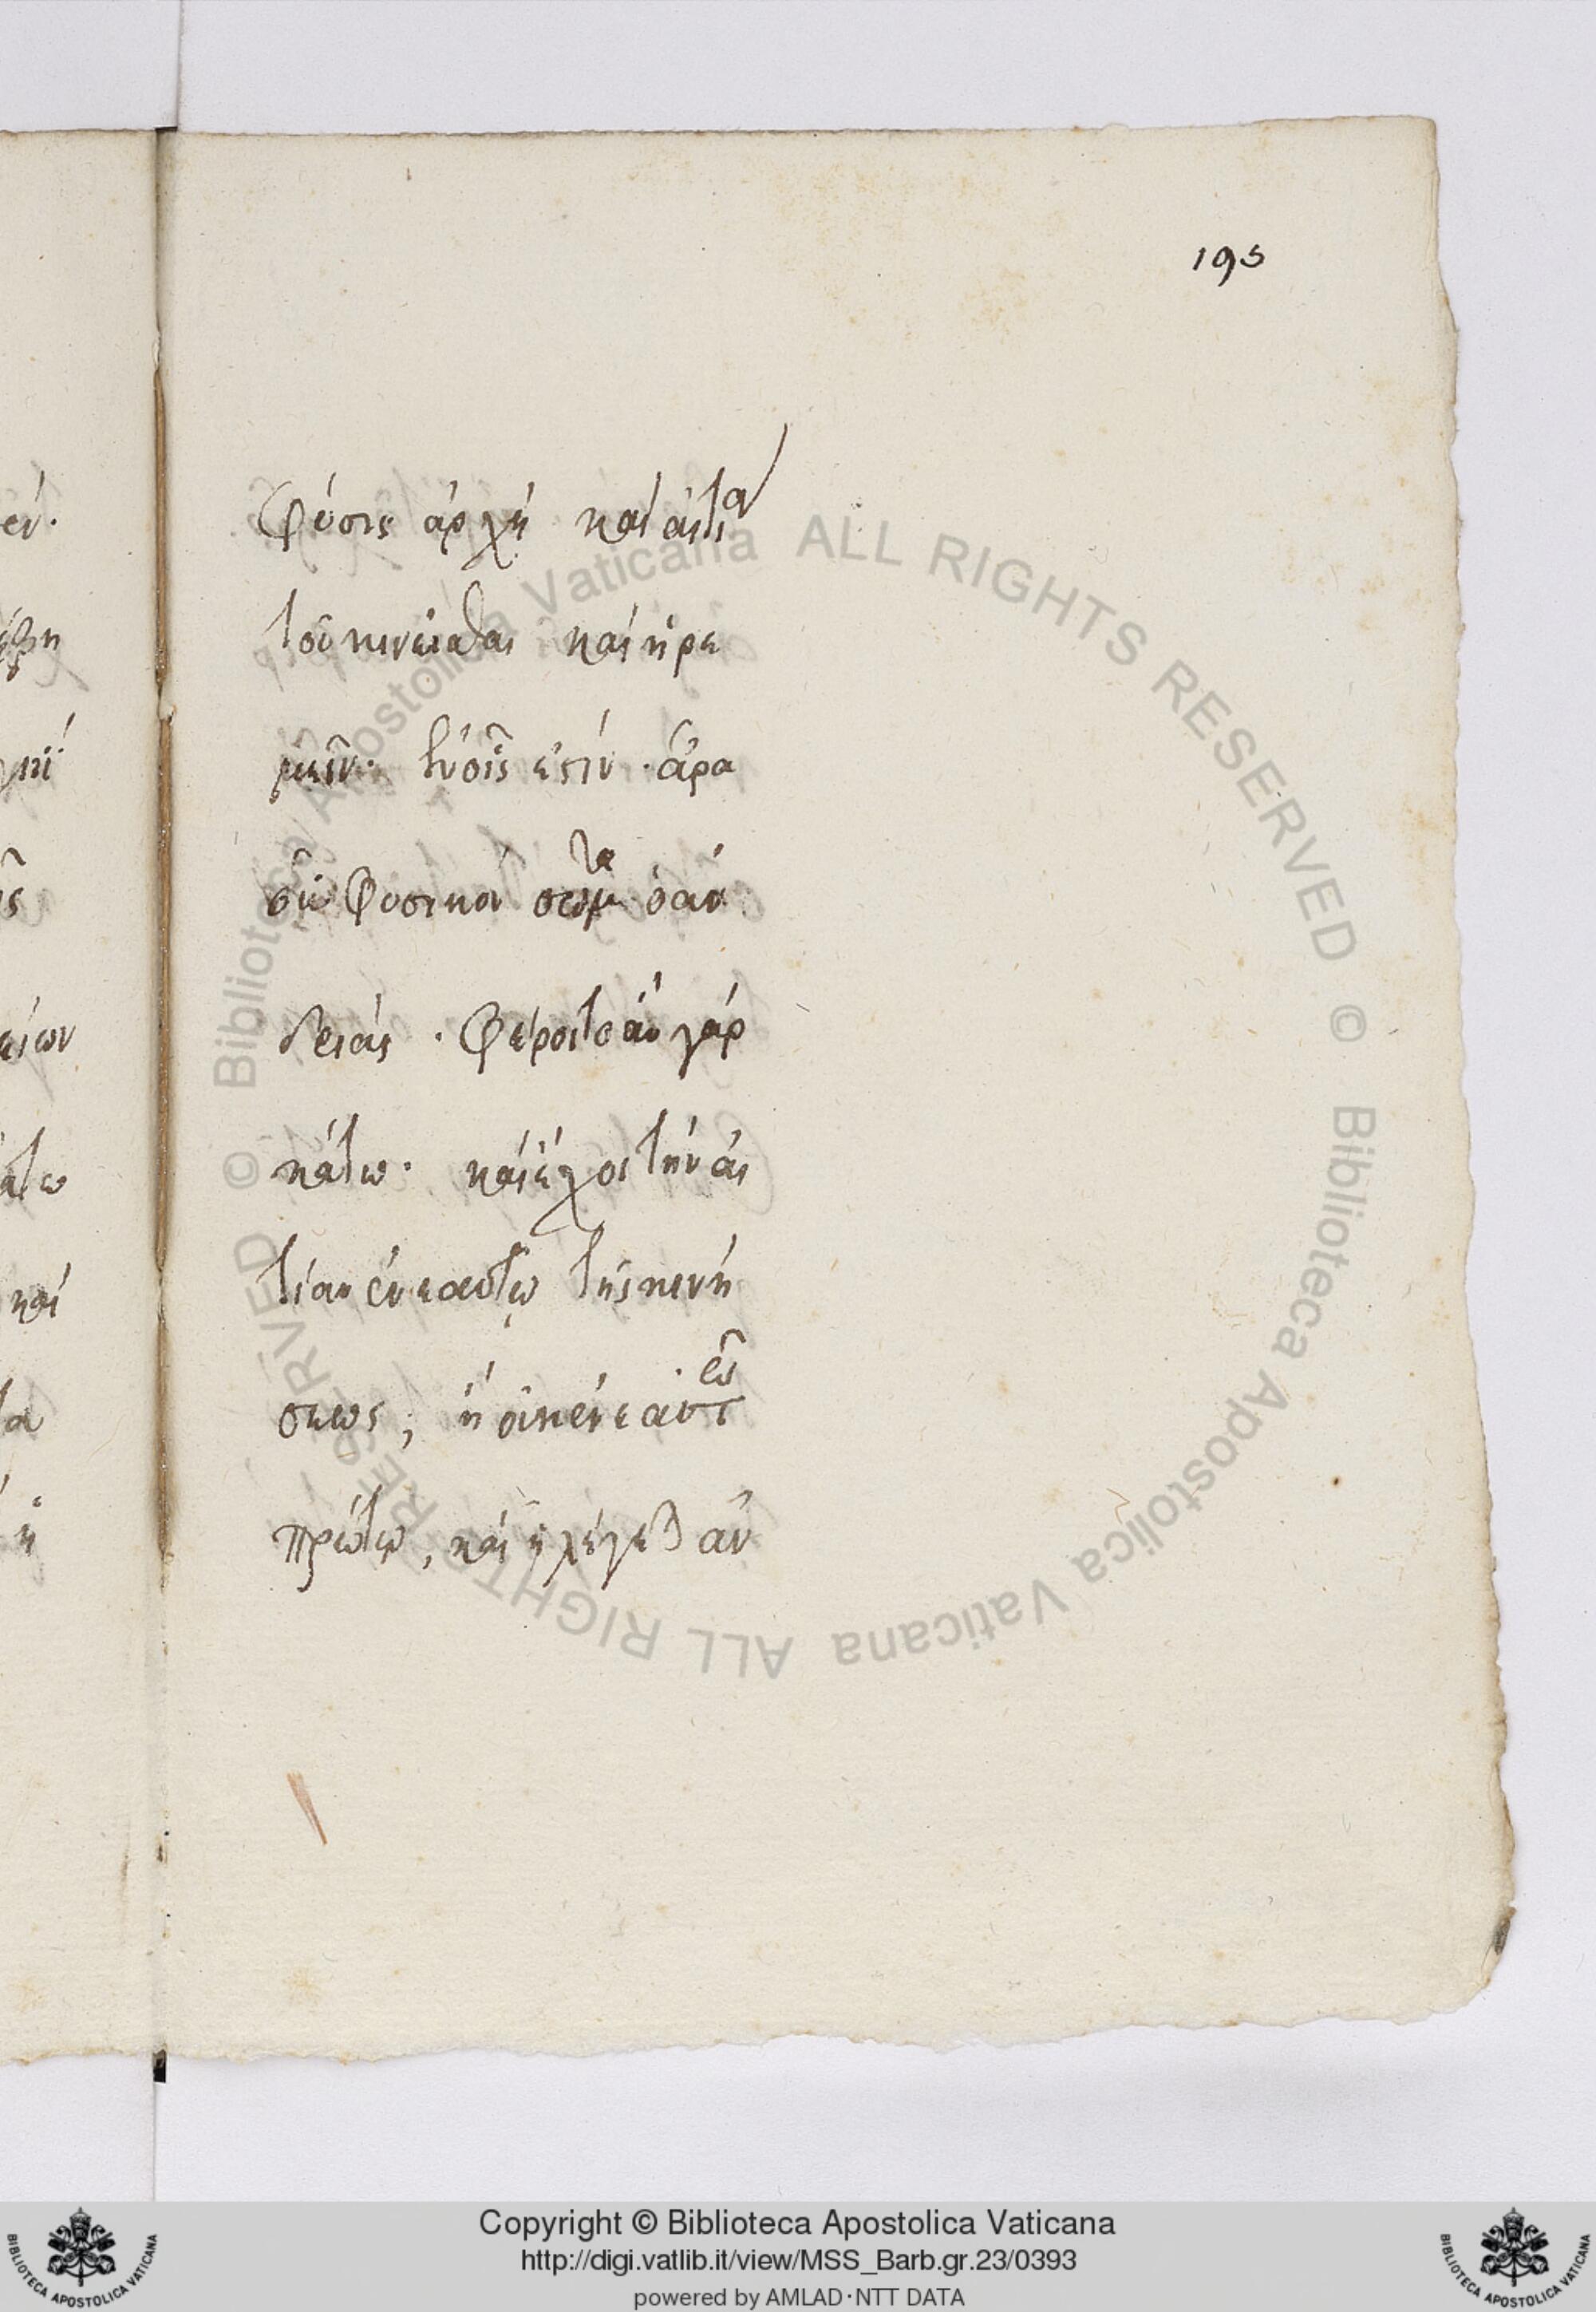 195
φύσις ἀρχὴ καὶ αἰτία
τοῦ κινεῖσθαι καὶ ἠρε
μεῖν· ἐν οἷς ἐστίν· ἆρα
οὖν φυσικὸν σῶμα ὁ ἀν
δριάς · φέροιτο ἂν γὰρ
κάτω· καὶ ἔχοι τὴν αἰ
τίαν ἐν ἑαυτῷ τῆς κινή
σεως; ἢ οὐκ ἐν ἑαυτῷ
πρώτῳ, καὶ ᾗ λέγεται ἀν
έν·
είων
άτω
καὶ
τα
ἢ
© Biblioteca Apostolica Vaticana ALL RIGHTS RESERVED © Biblioteca Apostolica Vaticana ALL RIGHTS RESERVED
Copyright © Biblioteca Apostolica Vaticana
http://digi.vatlib.it/view/MSS_Barb.gr.23/0393
powered by AMLAD·NTT DATA
BIBLIOTECA APOSTOLICA VATICANA
BIBLIOTECA APOSTOLICA VATICANA